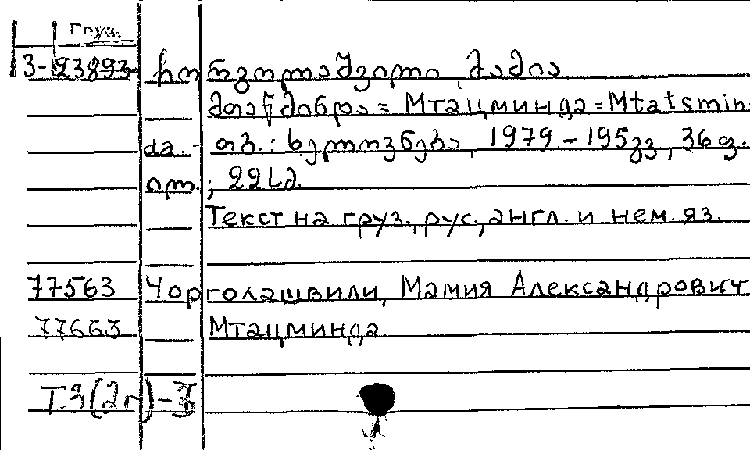 Груз.
3-23893 ჩორგოლაშვილი მამია
მთაწმინდა = Мтацминда = Mtatsmin-
da. - თბ.: ხელოვნება, 1979 - 195გვ, 36 ფ.
ილ.; 22სმ.
Текст на груз., рус., англ. и нем. яз.
77563 Чорголашвили, Мамия Александрович
77663 Мтацминда